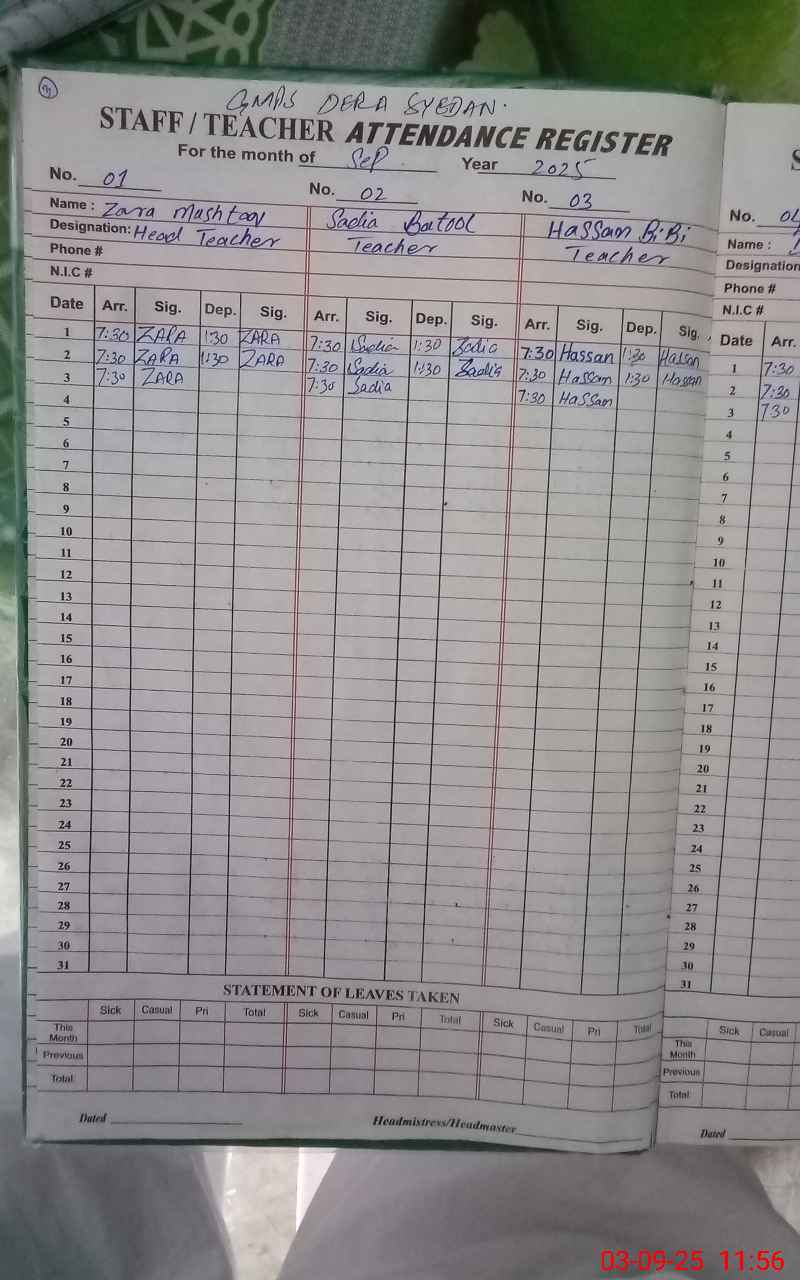 3
GMPS DERA SYEDAN.
STAFF / TEACHER ATTENDANCE REGISTER
For the month of Sep Year 2025
No. 01 No. 02 No. 03
Name : Zara Mushtaq Sadia Batool Hassam Bi Bi
Designation: Head Teacher Teacher Teacher
Phone #
N.I.C #
Date Arr. Sig. Dep. Sig. Arr. Sig. Dep. Sig. Arr. Sig. Dep. Sig.
1 7:30 ZARA 1:30 ZARA 7:30 Sadia 1:30 Sadia 7:30 Hassan 1:30 Hassan
2 7:30 ZARA 1:30 ZARA 7:30 Sadia 1:30 Sadia 7:30 Hassam 1:30 Hassan
3 7:30 ZARA 7:30 Sadia 7:30 Hassam
4
5
6
7
8
9
10
11
12
13
14
15
16
17
18
19
20
21
22
23
24
25
26
27
28
29
30
31
STATEMENT OF LEAVES TAKEN
Sick Casual Pri Total Sick Casual Pri Total Sick Casual Pri Total
This Month
Previous
Total
Dated Headmistress/Headmaster
S
No.
Name :
Designation
Phone #
N.I.C #
Date Arr.
1 7:30
2 7:30
3 730
4
5
6
7
8
9
10
11
12
13
14
15
16
17
18
19
20
21
22
23
24
25
26
27
28
29
30
31
Sick Casual
This Month
Previous
Total
Dated
03-09-25 11:56